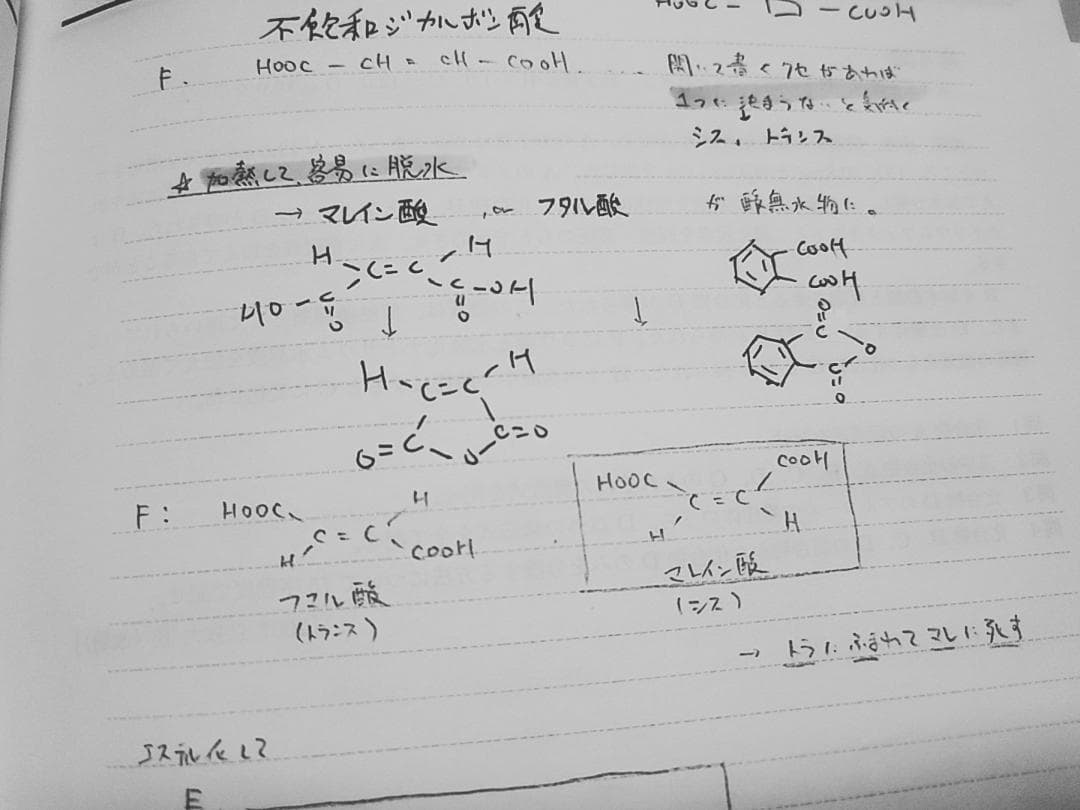 HOOC - - COOH
不飽和ジカルボン酸
F. HOOC - CH = CH - COOH. ... 開いて書くクセがあれば
1つに決まらないと気付く
シス、トランス
☆加熱して、容易に脱水
→ マレイン酸 , or フタル酸 が酸無水物に。
H H
C=C
HO-C C-OH
O O
COOH
COOH
↓ ↓
O
C
O
C
O
H H
C=C
O=C C=O
O
F: HOOC H
C=C
H COOH
フマル酸
(トランス)
HOOC COOH
C=C
H H
マレイン酸
(シス)
→ トラにふまれてマレに死す
エステル化して
E